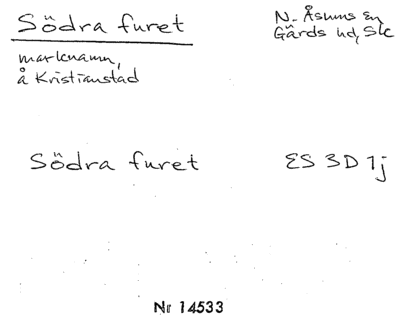 Södra furet
N. Åsums sn
Gärds hd, Skå
marknamn,
å Kristianstad
Södra furet
ES 3D 1j
Nr 14533